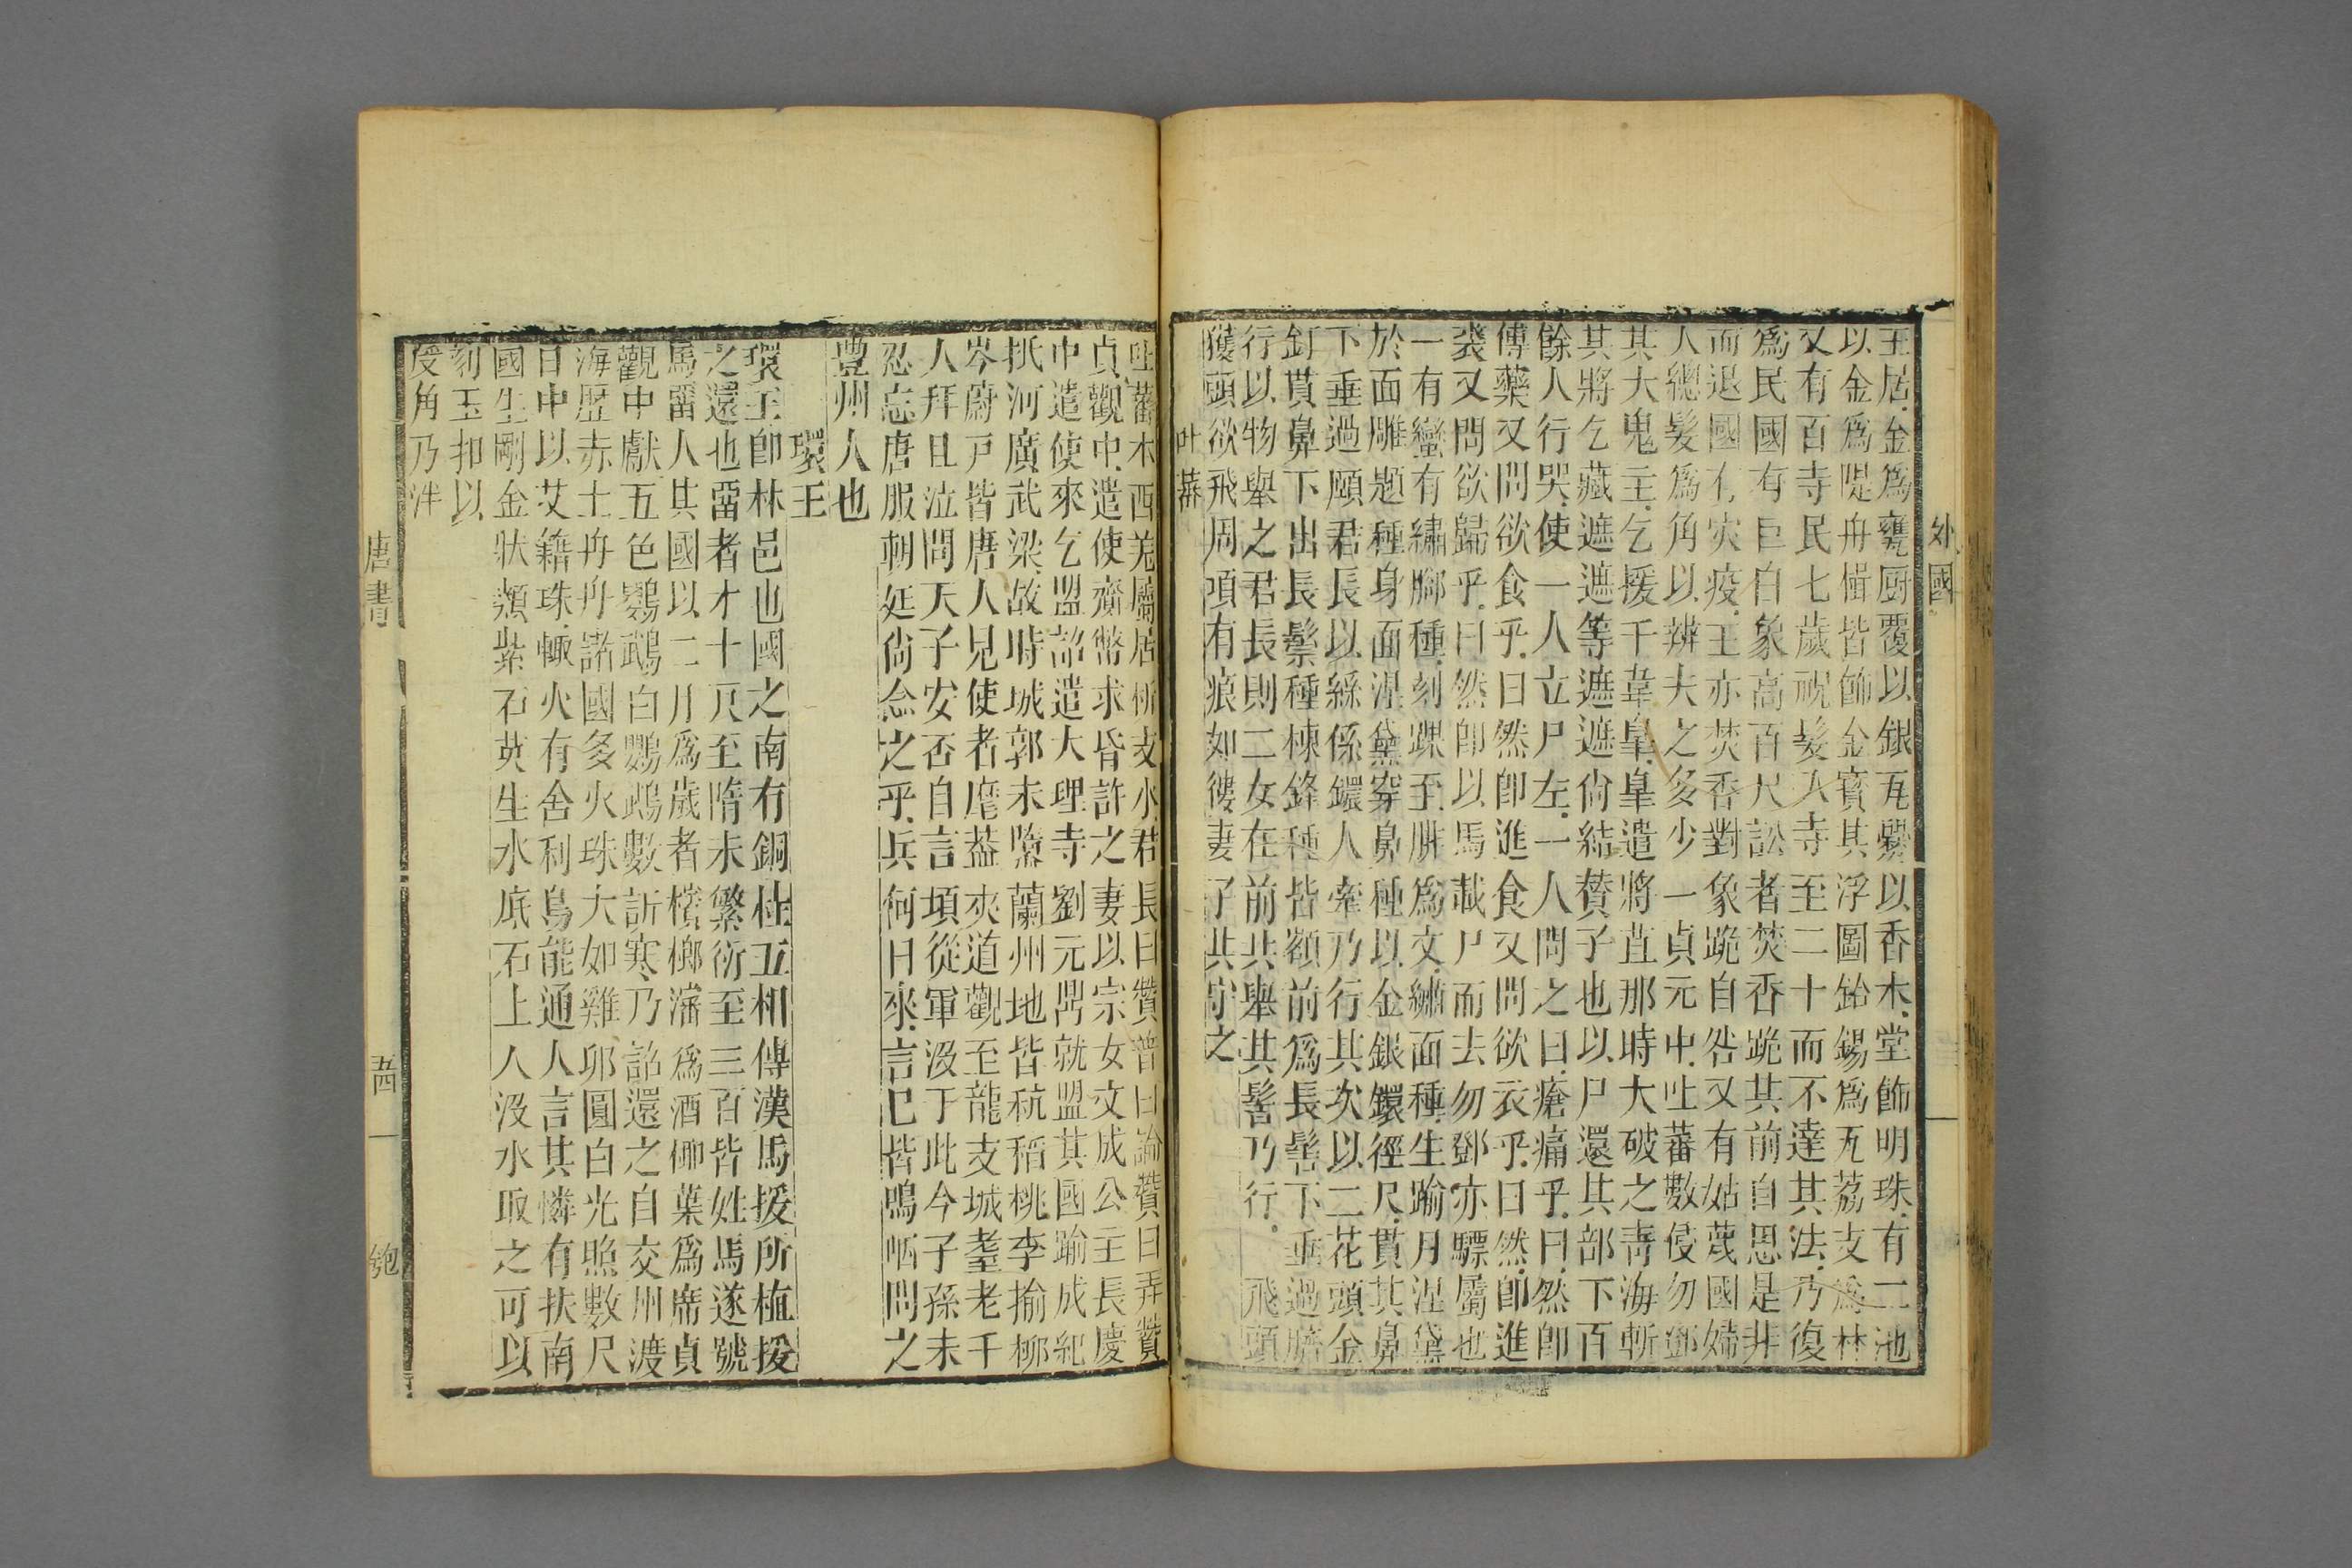 外國
王居金爲甕厨覆以銀瓦爨以香木堂飾明珠有二池
以金爲隄舟檝皆飾金寳其浮圖鉛錫爲瓦荔支爲林
又有百寺民七歲祝髮入寺至二十而不達其法乃復
爲民國有巨白象高百尺訟者焚香跪其前自思是非
而退國有灾疫王亦焚香對象跪自咎又有姑蔑國婦
人總髮爲角以辨夫之多少一貞元中吐蕃數侵勿鄧
其大鬼主乞援于韋臯臯遣將苴那時大破之靑海斬
其將乞藏遮遮等遮遮尙結贊子也以尸還其部下百
餘人行哭使一人立尸左一人問之曰瘡痛乎曰然卽
傅藥又問欲食乎曰然卽進食又問欲衣乎曰然卽進
裘又問欲歸乎曰然卽以馬載尸而去勿鄧亦驃屬也
一有蠻有繡脚種刻踝至腓爲文繡面種生踰月涅黛
於面雕題種身面涅黛穿鼻種以金銀鐶徑尺貫其鼻
下垂過頤君長以絲係鐶人牽乃行其次以二花頭金
釘貫鼻下出長鬃種棟鋒種皆額前爲長髻下垂過臍
行以物舉之君長則二女在前共舉其髻乃行 飛頭
獠頭欲飛周項有痕如縷妻子共守之
吐蕃
吐蕃本西羌屬居析支水君長曰贊普曰論贊曰弄贊
貞觀中遣使齎幣求昏許之妻以宗女文成公主長慶
中遣使來乞盟詔遣大理寺劉元鼎就盟其國踰成紀
抵河廣武梁故時城郭未隳蘭州地皆秔稻桃李揄柳
岑蔚戸皆唐人見使者麾葢夾道觀至龍支城耋老千
人拜且泣問天子安否自言頃從軍沒于此今子孫未
忍忘唐服朝廷尙念之乎兵何日來言已皆鳴咽問之
豐州人也
環王
環王卽林邑也國之南有銅柱五相傳漢馬援所植援
之還也畱者才十戸至隋末繁衍至三百皆姓馬遂號
馬畱人其國以二月爲歲者檳榔瀋爲酒㭨葉爲席貞
觀中獻五色鸚鵡白鸚鵡數訴寒乃詔還之自交州渡
海歷赤土丹丹諸國多火珠大如雞卵圓白光照數尺
日中以艾藉珠輙火有舍利鳥能通人言其憐有扶南
國生剛金狀類紫石英生水底石上人沒水取之可以
刻玉扣以
羖角乃泮
唐書